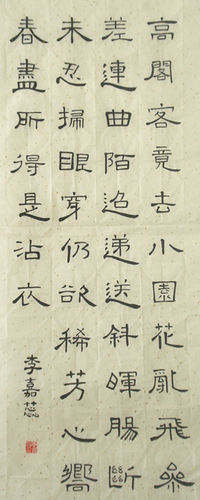 高閣客竟去小園花亂飛參
差連曲陌迢遞送斜暉腸斷
未忍掃眼穿仍欲稀芳心嚮
春盡所得是沾衣
李嘉蕊